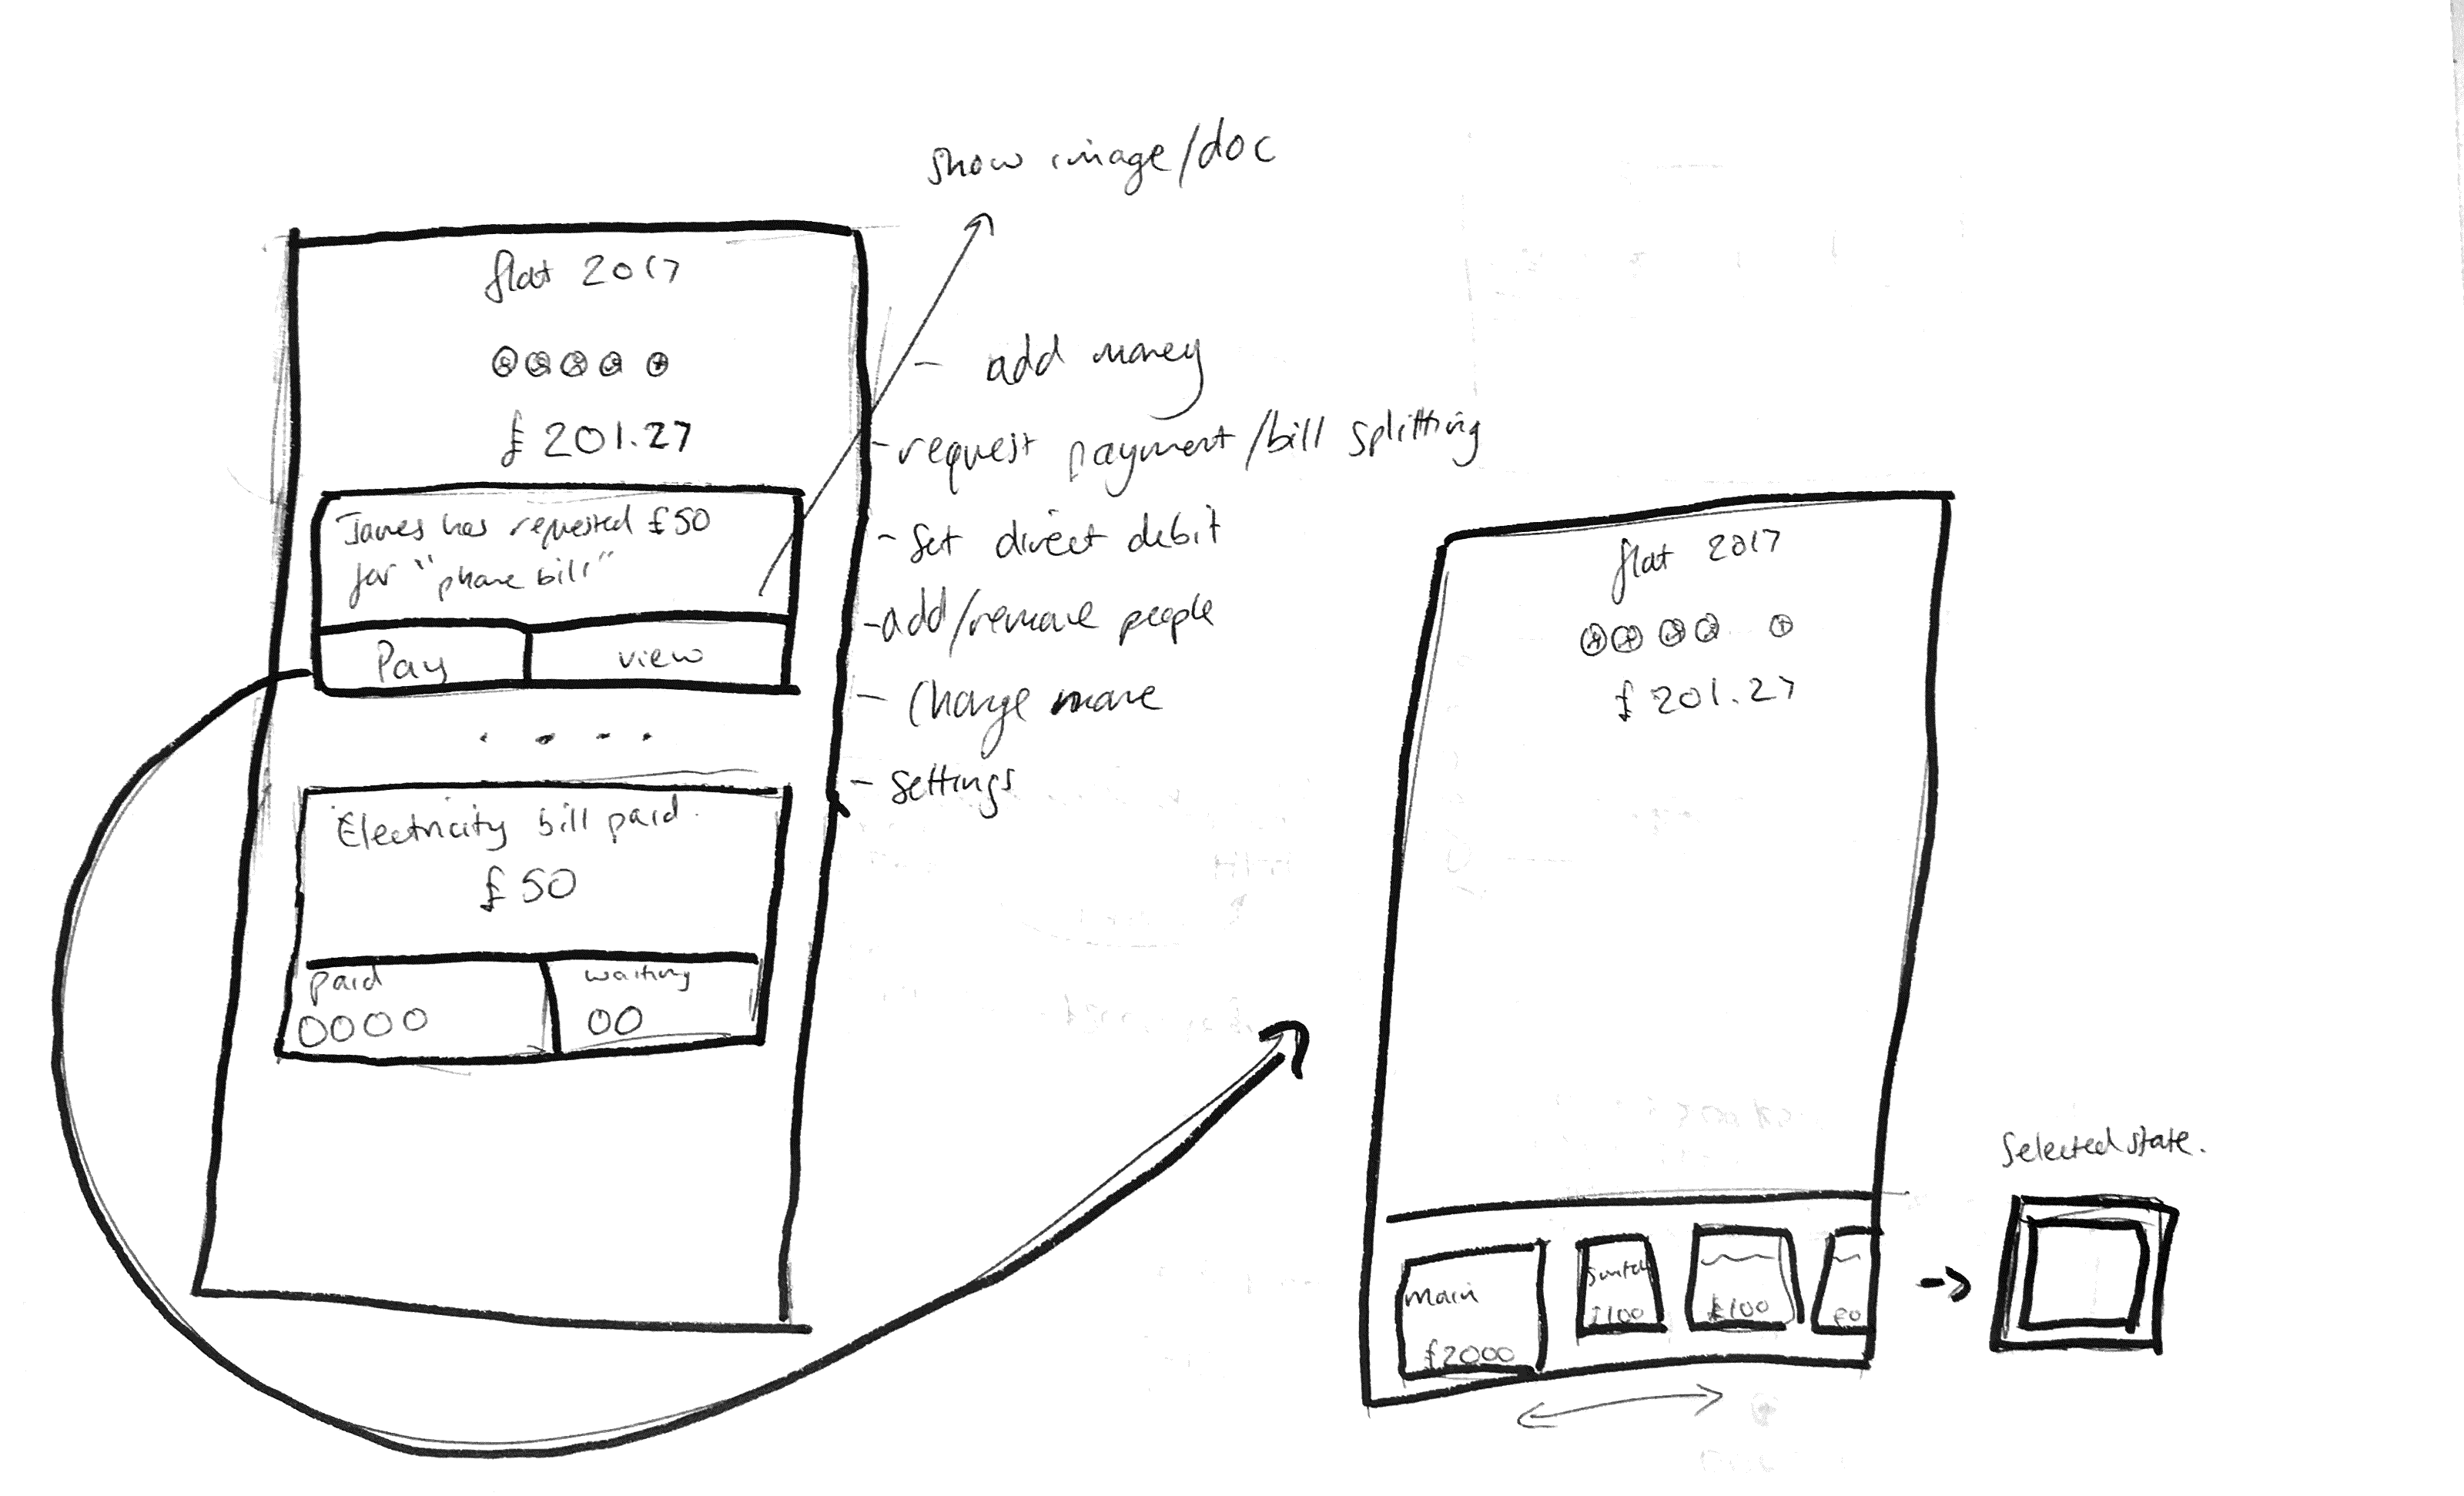 show image/doc
flat 2017
£201.27
James has requested £50
for "phone bill"
Pay
view
Electricity bill paid.
£50
paid
waiting
- add money
- request payment/bill splitting
- set direct debit
- add/remove people
- settings
flat 2017
£201.27
main
£2000
£100
£100
£0
Selected state.